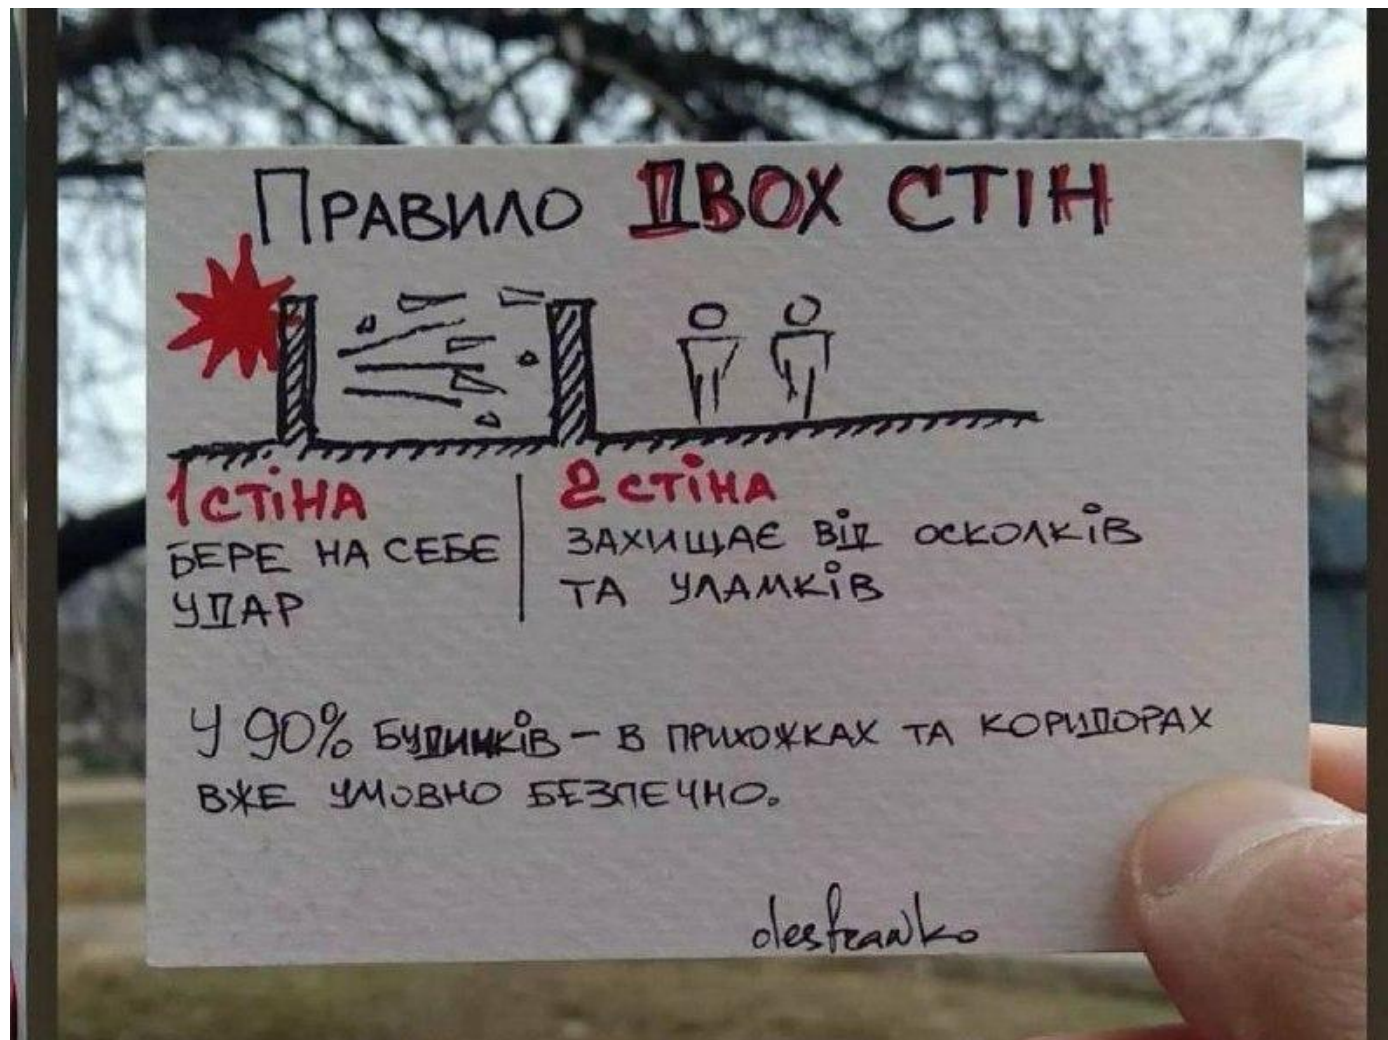 Правило ДВОХ СТІН
1 СТІНА
БЕРЕ НА СЕБЕ
УДАР
2 СТІНА
ЗАХИЩАЄ ВІД ОСКОЛКІВ
ТА УЛАМКІВ
У 90% БУДИНКІВ – В ПРИХОЖКАХ ТА КОРИДОРАХ
ВЖЕ УМОВНО БЕЗПЕЧНО.
olesfranko